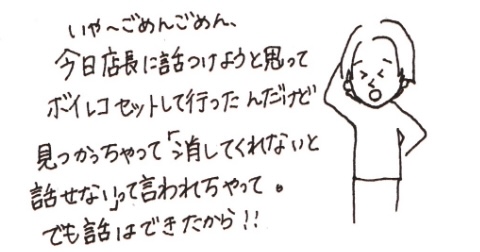 いや〜ごめんごめん、
今日店長に話つけようと思って
ボイレコセットして行ったんだけど
見つかっちゃって「消してくれないと
話せない」って言われちゃって。
でも話はできたから!!